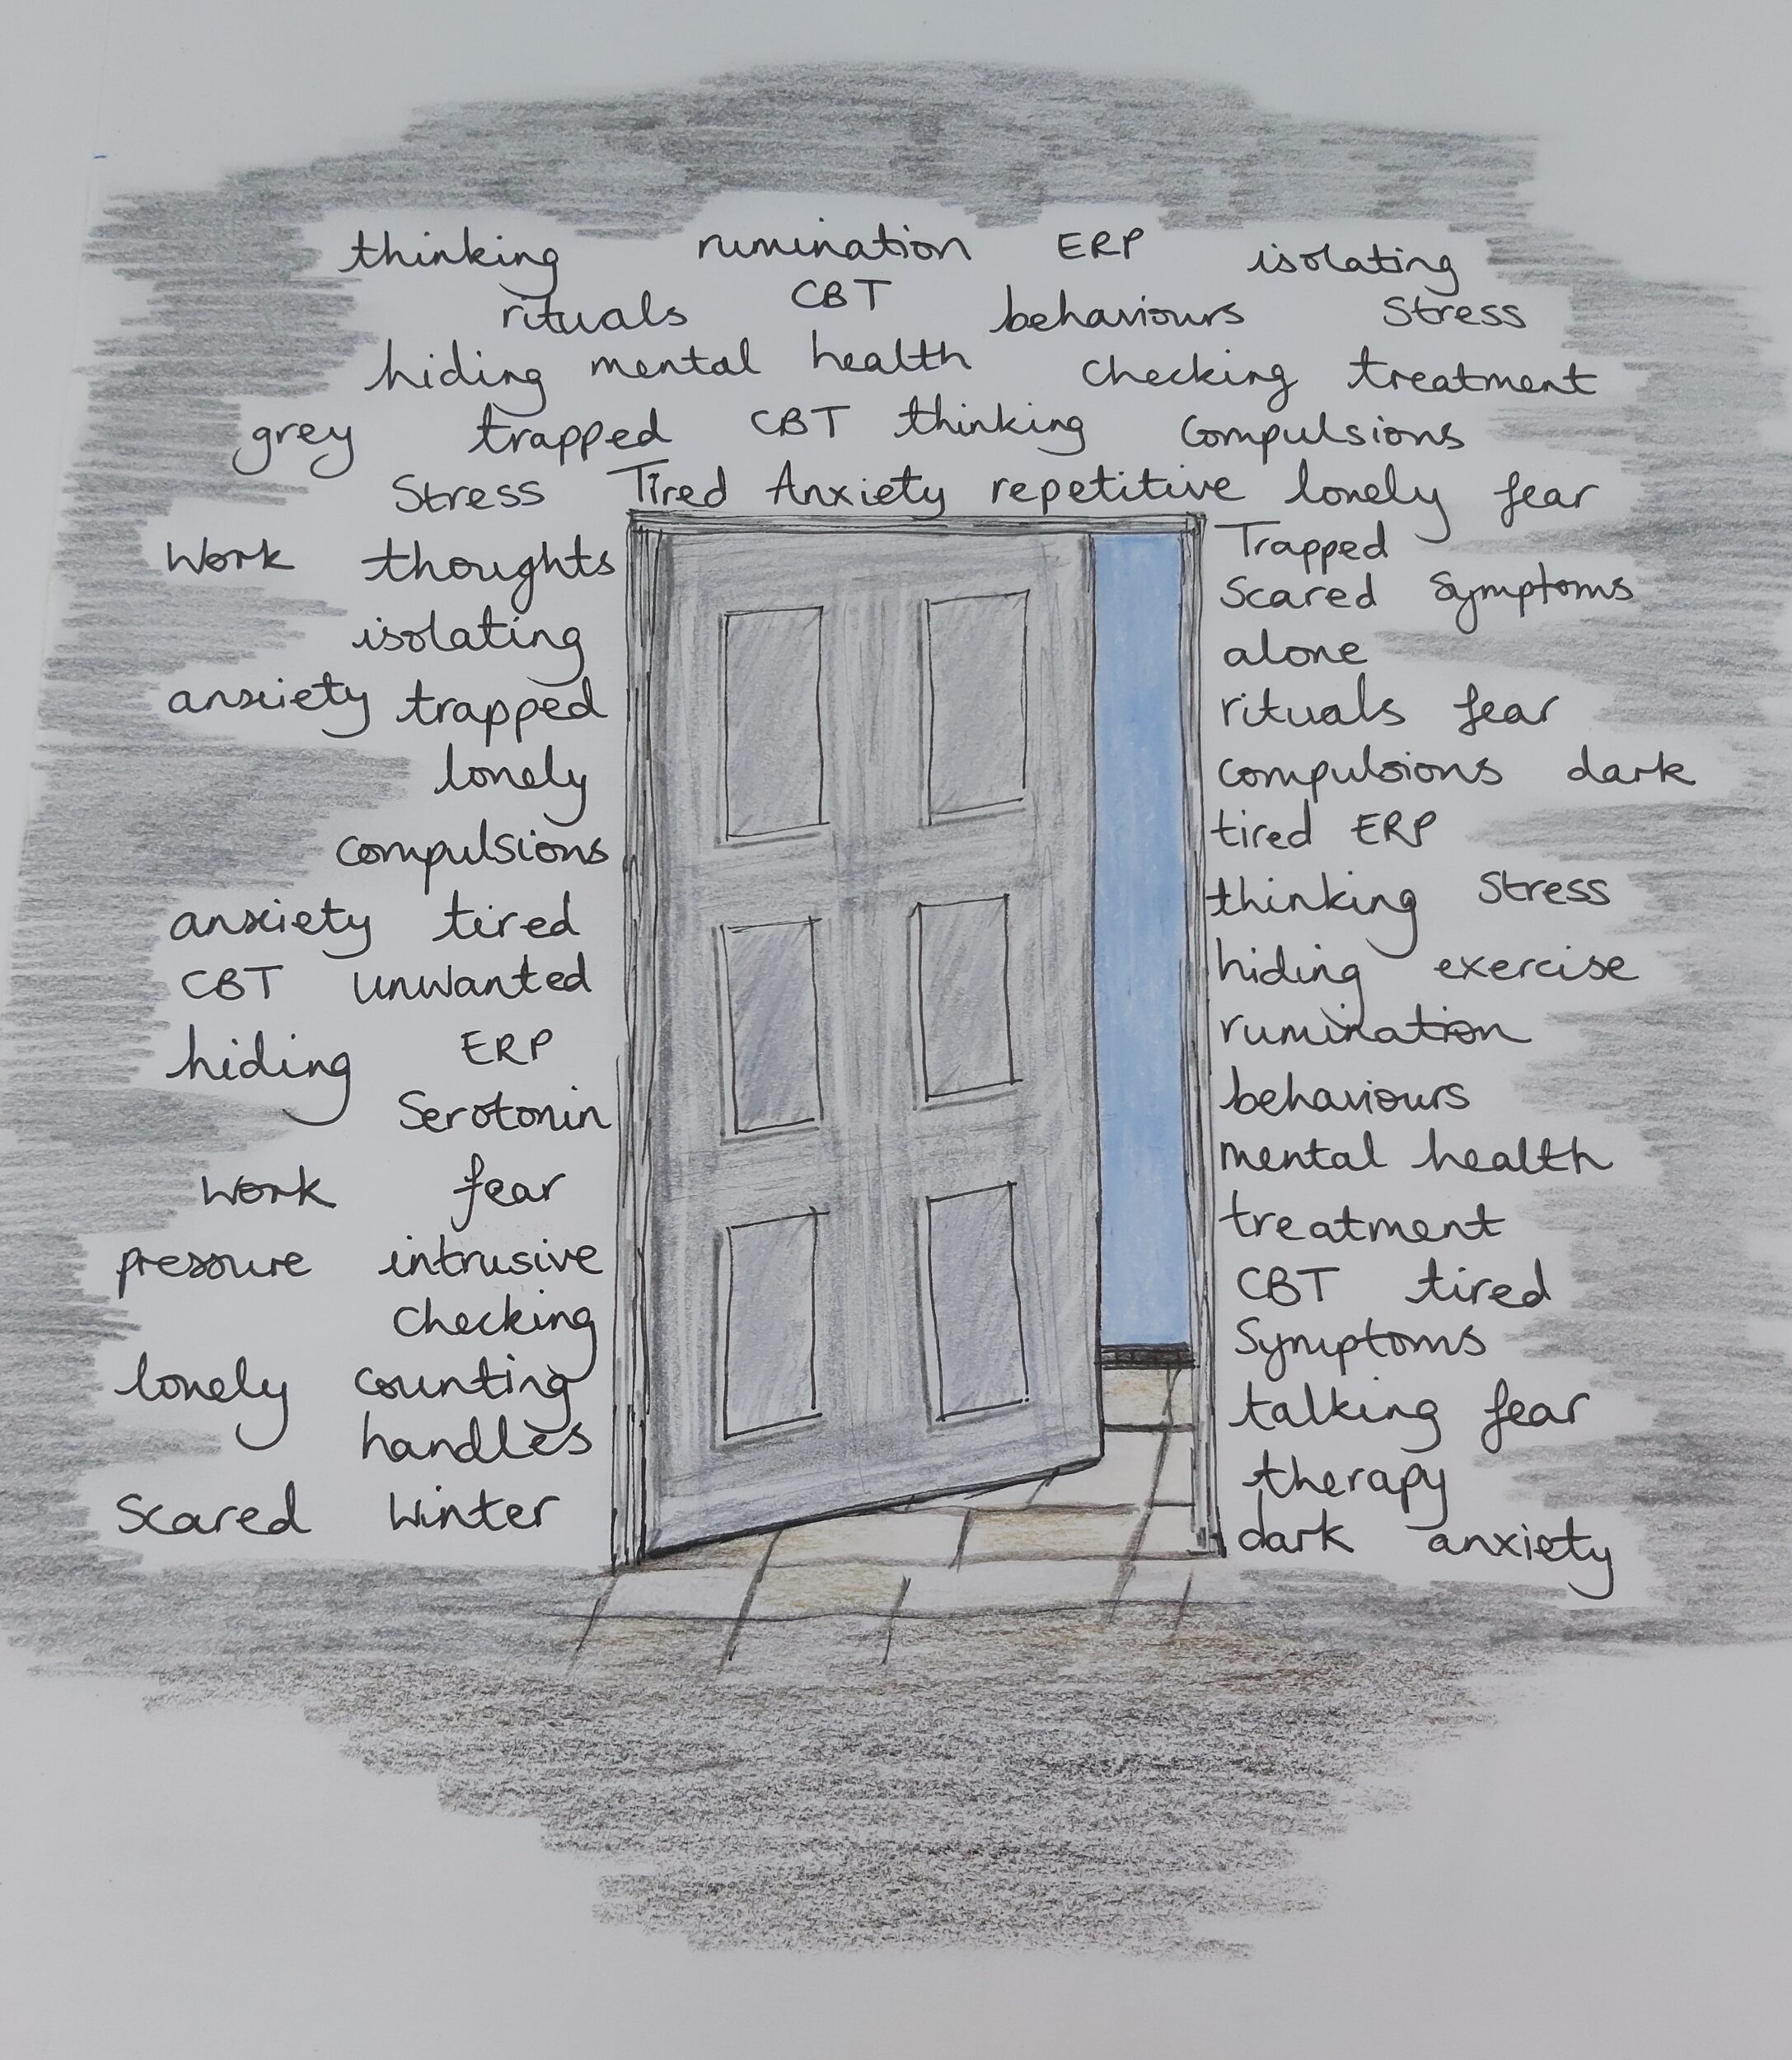 thinking rumination ERP isolating
rituals CBT behaviours Stress
hiding mental health checking treatment
grey trapped CBT thinking Compulsions
Stress Tired Anxiety repetitive lonely fear
Work thoughts
isolating
anxiety trapped
lonely
compulsions
anxiety tired
CBT unwanted
hiding ERP
Serotonin
work fear
pressure intrusive
checking
lonely counting
handles
Scared Winter
Trapped
Scared Symptoms
alone
rituals fear
compulsions dark
tired ERP
thinking Stress
hiding exercise
rumination
behaviours
mental health
treatment
CBT tired
Symptoms
talking fear
therapy
dark anxiety